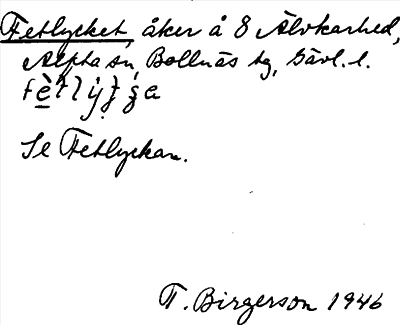 Fetlycket, åker å 8 Älvkarhed,
Alfta sn, Bollnäs tg, Gävl. l.
Se Fetlyckan.
T. Birgerson 1946